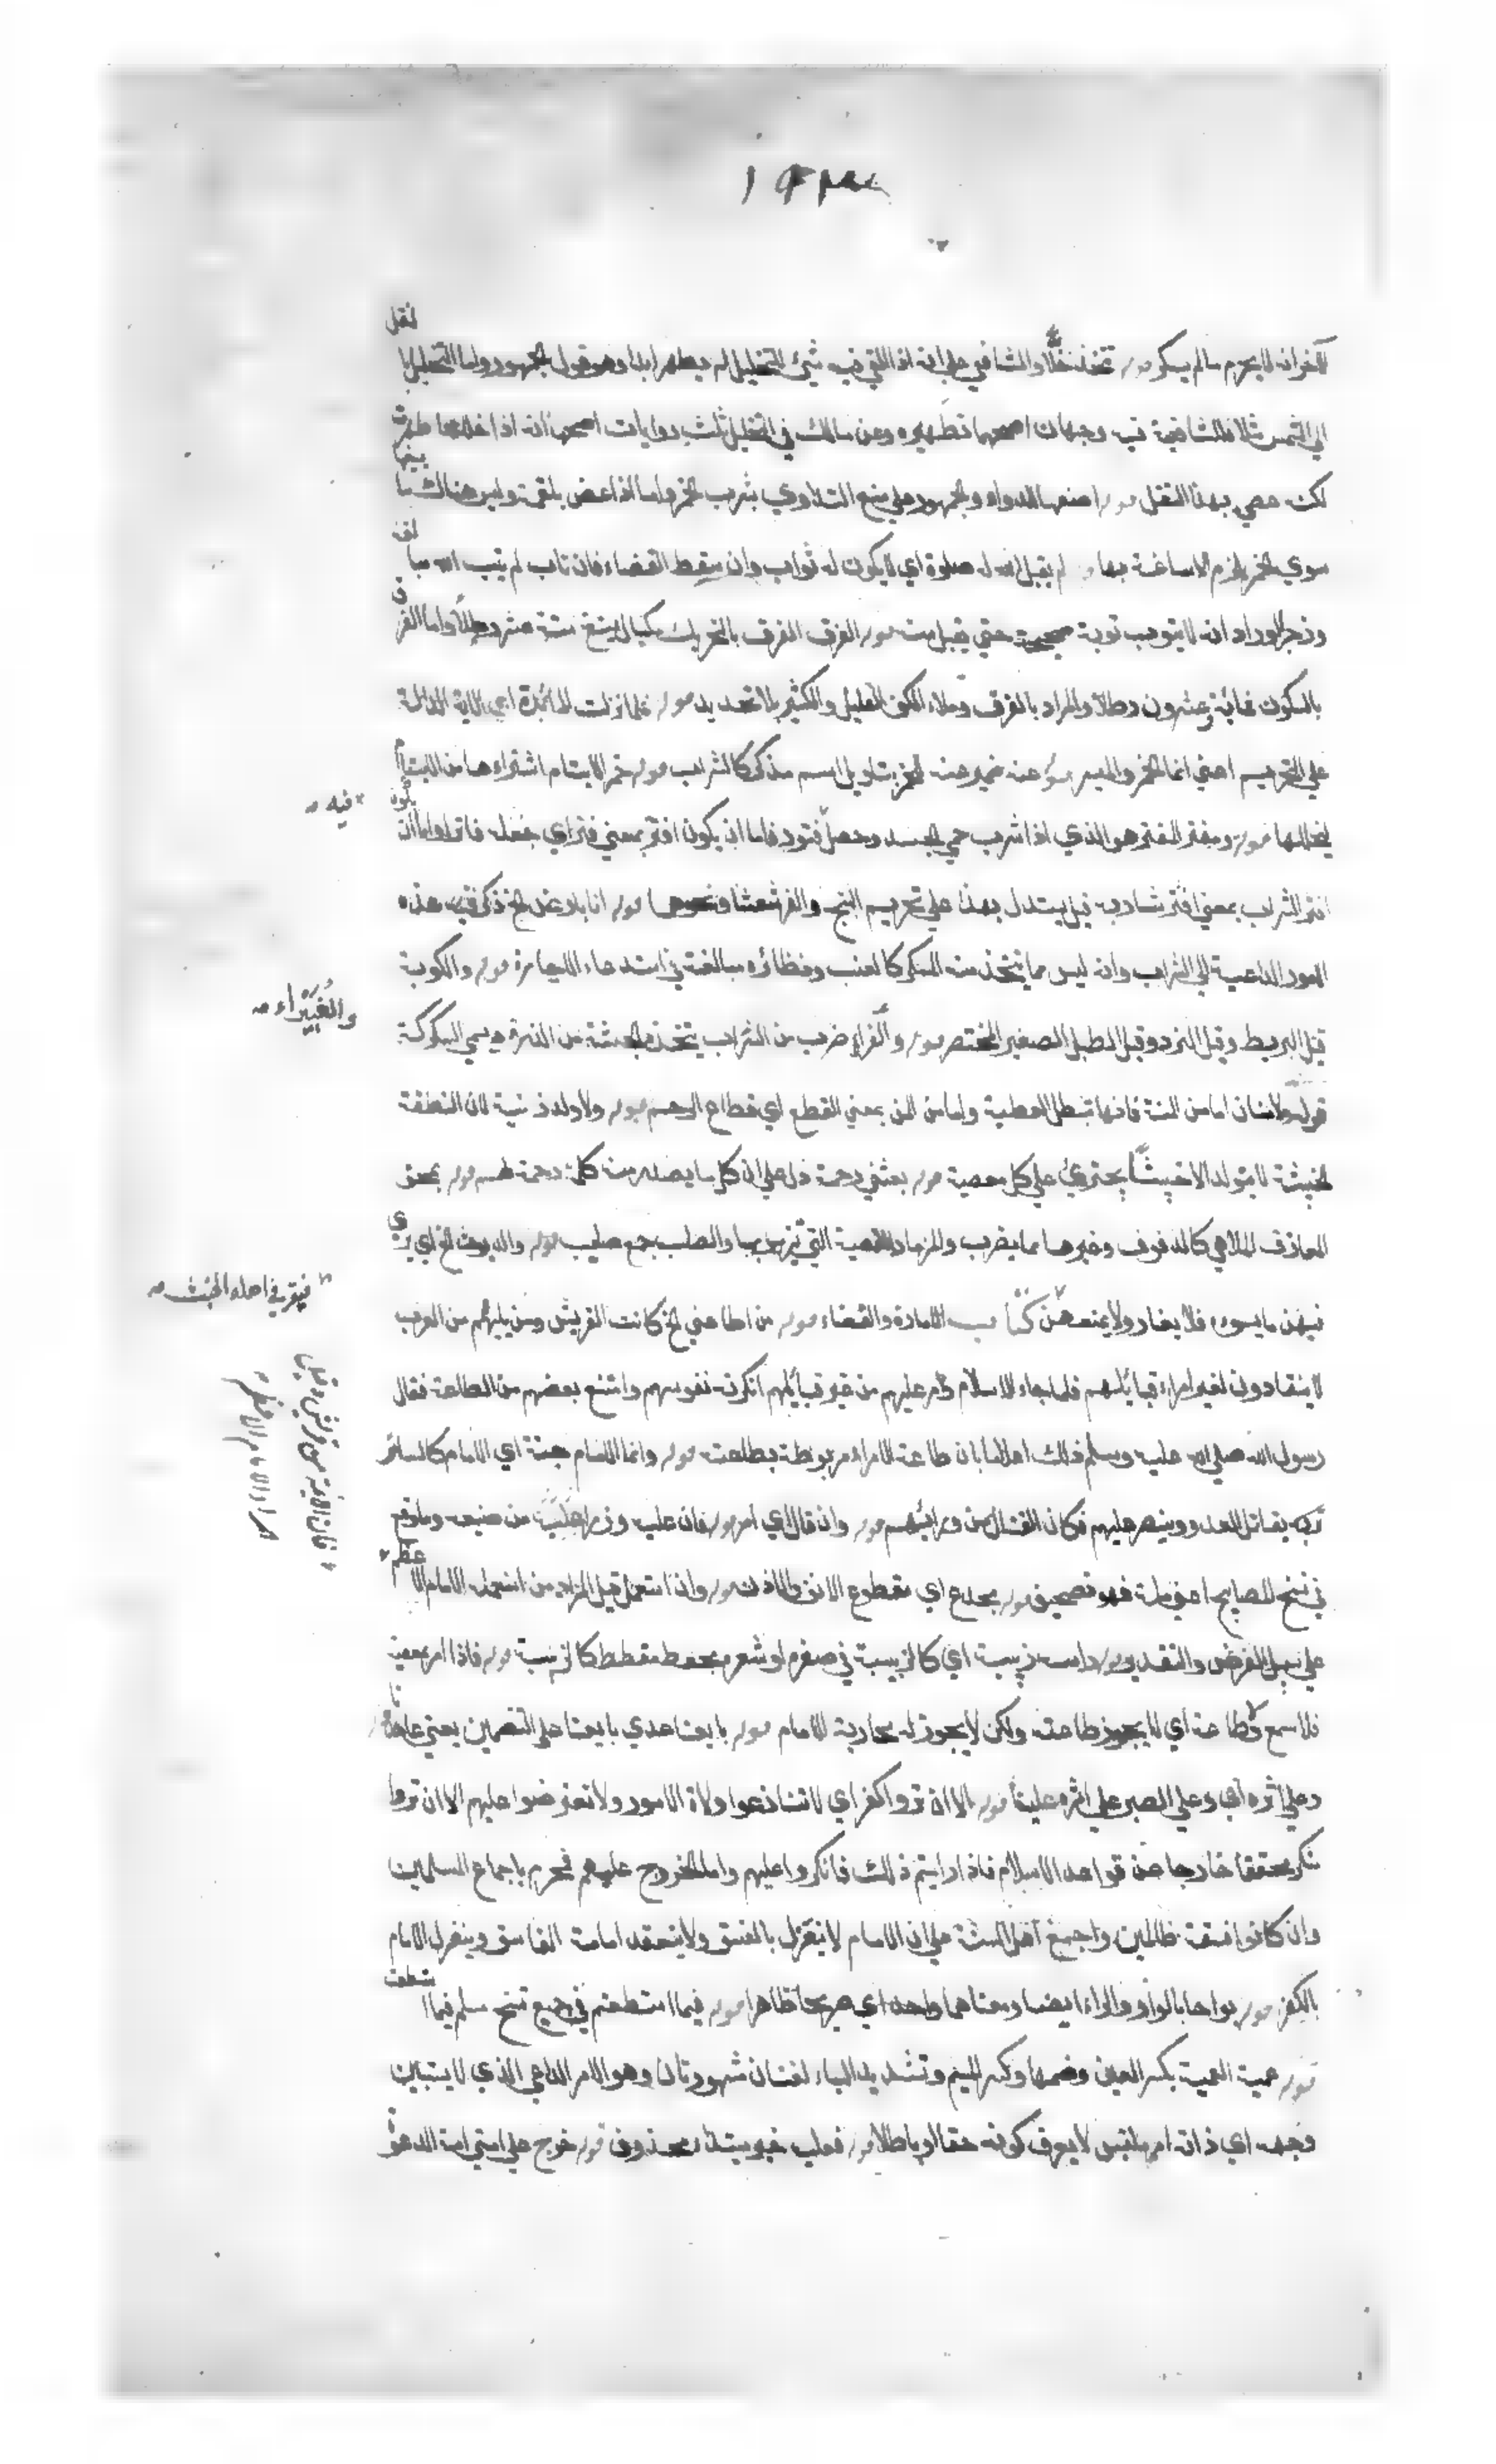 ١٩٣
للآخر انه لا يحرم ما لم يسكر قوله تتخذ خلّا والشافعي على انه اذا القي فيه شيئ للتخليل لم يطهر ابدا وهو قول الجمهور واما التخليل بالنقل
الى الشمس مثلا فللشافعية فيه وجهان اصحهما تطهيره وعن مالك في التخليل ثلث روايات اصحها انه اذا خللها طهرت
لكنه عصى بهذا الفعل قوله اصنعها للدواء والجمهور على منع التداوي بشرب الخمر واما اذا غص بلقمة وليس هناك ما يسيغها
سوى الخمر يلزم الاساغة بها قوله لم يقبل الله له صلوة اي لا يكون له ثواب وان سقط القضاء فان تاب لم يتب الله مبالغة
وزجر والمراد انه لا يتوب توبة صحيحة حتى يقبل منه قوله الفرق الفرق بالتحريك مكيال يسع ستة عشر رطلا واما الفرق
بالسكون فمائة وعشرون رطلا والمراد بالفرق وملاء الكف القليل والكثير بلا تحديد قوله فلما نزلت المائدة اي الاية الدالة
على التحريم اعني انما الخمر والميسر قوله عنه ضمير عنه للخمر بتاويل اسم مذكر كالشراب قوله خمر الايتام اشتراء ها من اليتامى
ليخللها قوله ومفتر المفتر هو الذي اذا شرب حمي الجسد وحصل فتور فاما ان يكون افتر بمعنى فتر اي جعله فاترا واما ان يكون
فيه
افتر الشراب بمعنى افتر شاربه قيل يستدل بهذا على تحريم البنج والفرشعثا ونحوهما قوله انا بارض الخ ذكر فيه هذه
الامور الداعية الى الشراب وانه ليس مما يتخذ منه المسكر كالعنب ونظائره مبالغة في استدعاء الاجازة قوله والكوبة
قيل البربط وقيل النرد وقيل الطبل الصغير المختصر قوله والغبيراء ضرب من الشراب يتخذه الحبشة من الذرة ويسمى السكركة
والغُبَيْراء
قوله ولا منان اما من المنة فانها تبطل العطية واما من المن بمعنى القطع اي قطاع الرحم قوله ولا ولد زنية لان النطفة
الخبيثة لا يتولد الا خبيثا يجترئ على كل معصية قوله بعثني رحمة دل على ان كل ما يصدر منه كله رحمة لهم قوله بمحق
المعازف الملاهي كالدفوف وغيرها مما يضرب والمزمار القصبة التي يزمر بها والصلب جمع صليب قوله والديوث الخ اي يرى
فيهن ما يسوءه فلا يغار ولا يمنعهن كتاب الامارة والقضاء قوله من اطاعني الخ كانت القريش ومن يليهم من العرب
فيقر في اهله الخبث
لا ينقادون لغير امراء قبائلهم فلما جاء الاسلام وامر عليهم من غير قبائلهم انكرته نفوسهم وامتنع بعضهم من الطاعة فقال
رسول الله صلى الله عليه وسلم ذلك اعلاما بان طاعة الامراء مربوطة بطاعته قوله وانما الامام جنة اي الامام كالساتر
فان الائمة من قريش وقيل
المراد الامام الاعظم
به يقاتل العدو وينصر عليهم فكان القتال من ورائهم قوله وان قال اي امر قوله فان عليه وزرا عليه من صنيعه وما وقع
في نسخ المصابيح اعني منة فهو تصحيف قوله مجدع اي مقطوع الانف والاذن قوله وان استعمل قيل المراد من استعمله الامام الاعظم
على سبيل الفرض والتقدير قوله راسه زبيبة اي كالزبيبة في صغره او شعره مجعد مقطط كالزبيبة قوله فاذا امر بمعصية
فلا سمع ولا طاعة اي لا يجوز طاعته ولكن لا يجوز له محاربة الامام قوله بايعنا عدي بايعنا بعلى لتضمين يعني عاهدنا
وعلى اثرة اي وعلى الصبر على اثرة علينا قوله الا ان تروا كفرا اي لا تنازعوا ولاة الامور ولا تعترضوا عليهم الا ان تروا
منكر محققا خارجا عن قواعد الاسلام فاذا رايتم ذلك فانكروا عليهم واما الخروج عليهم فمحرم باجماع المسلمين
وان كانوا فسقة ظالمين واجمع اهل السنة على ان الامام لا ينعزل بالفسق ولا ينعقد امامة الفاسق وينعزل الامام
بالكفر قوله بواحا بالواو والراء ايضا ومعناهما واحد اي صريحا ظاهرا قوله فيما استطعتم في جميع نسخ مسلم فيما استطعت
قوله عمية العمية بكسر العين وضمها وكسر الميم وتشديد الياء لغتان مشهورتان وهو الامر الداعي الذي لا يستبين
وجهه اي ذاته امر ملتبس لا يعرف كونه حقا او باطلا قوله فعليه خبر مبتدا محذوف قوله خرج على امتي امة الدعوة